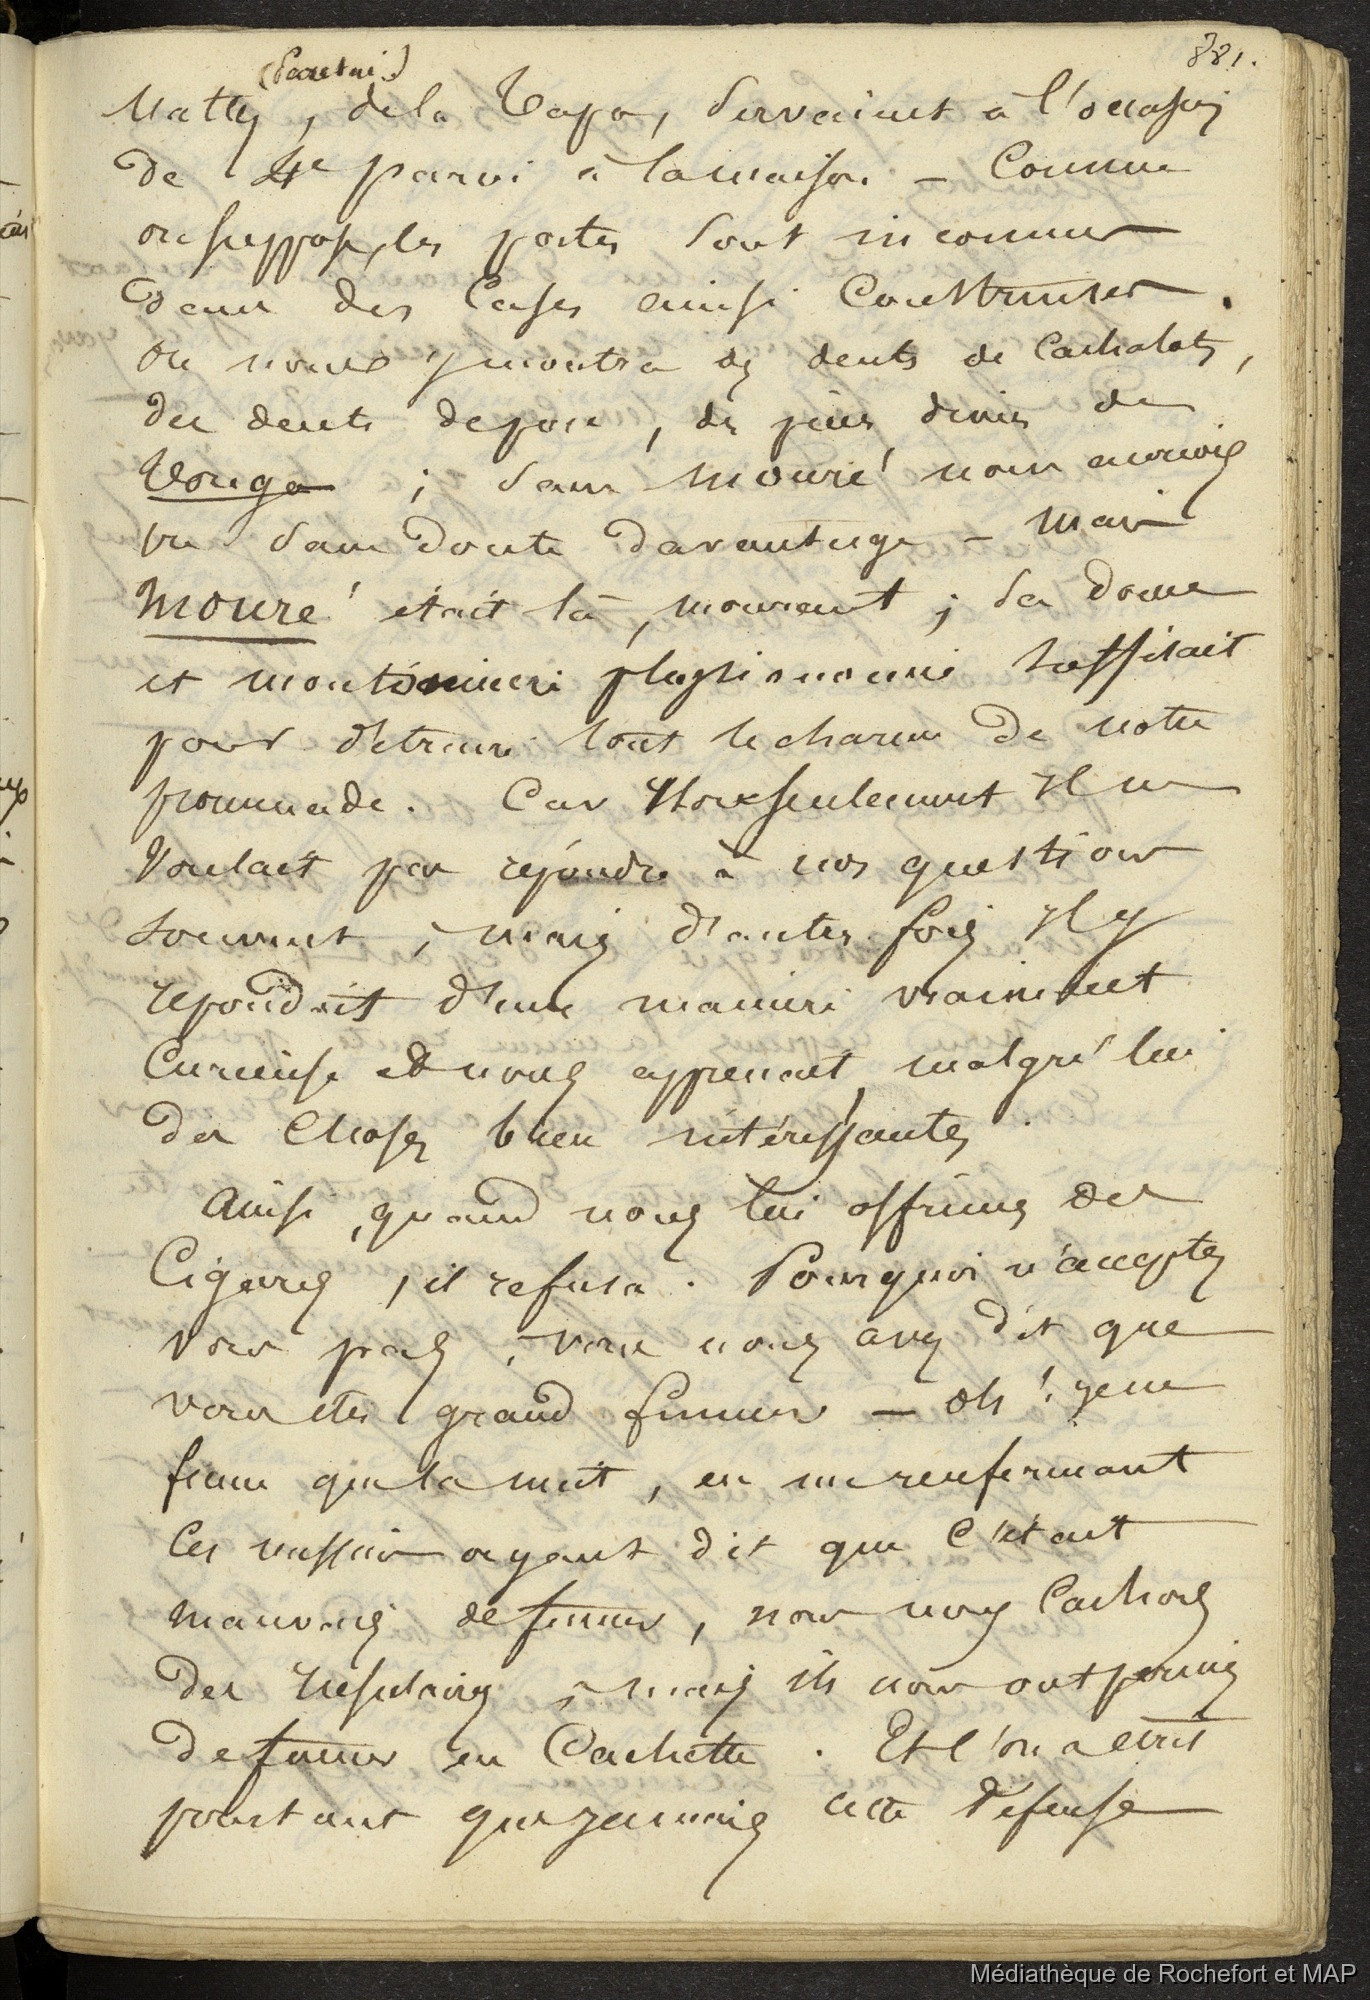 881.
Natty, de la Tapa, servaient à l'occasion
de 4e paroi à la maison – Comme
on suppose, les portes sont inconnues
dans des Cases ainsi Construites.
On nous y montra des dents de Cachalots,
des dents de porc, des
Tonga ; sans Mouré nous aurions
vu sans doute davantage – Mais
Mouré était là, mourant ; sa
et physionomie suffisait
pour détruire tout le charme de notre
promenade. Car Non seulement Il ne
Voulait pas répondre à nos questions
souvent, mais d'autres fois Il y
repondait d'une maniere vraiment
Curieuse et nous apprenait, malgré lui
des Choses bien intéressantes.
Ainsi, quand nous lui offrimes des
Cigares, il refusa. Pourquoi n'acceptez
vous pas, vous nous avez dit que
vous êtes grand fumeur – Oh ! je ne
fume que la nuit, en me renfermant
Ces messieurs ayant dit que C'était
mauvais de fumer, nous nous Cachons
des , mais ils nous ont permis
de fumer en Cachette. Et l'on a écrit
pourtant que jamais cette défense